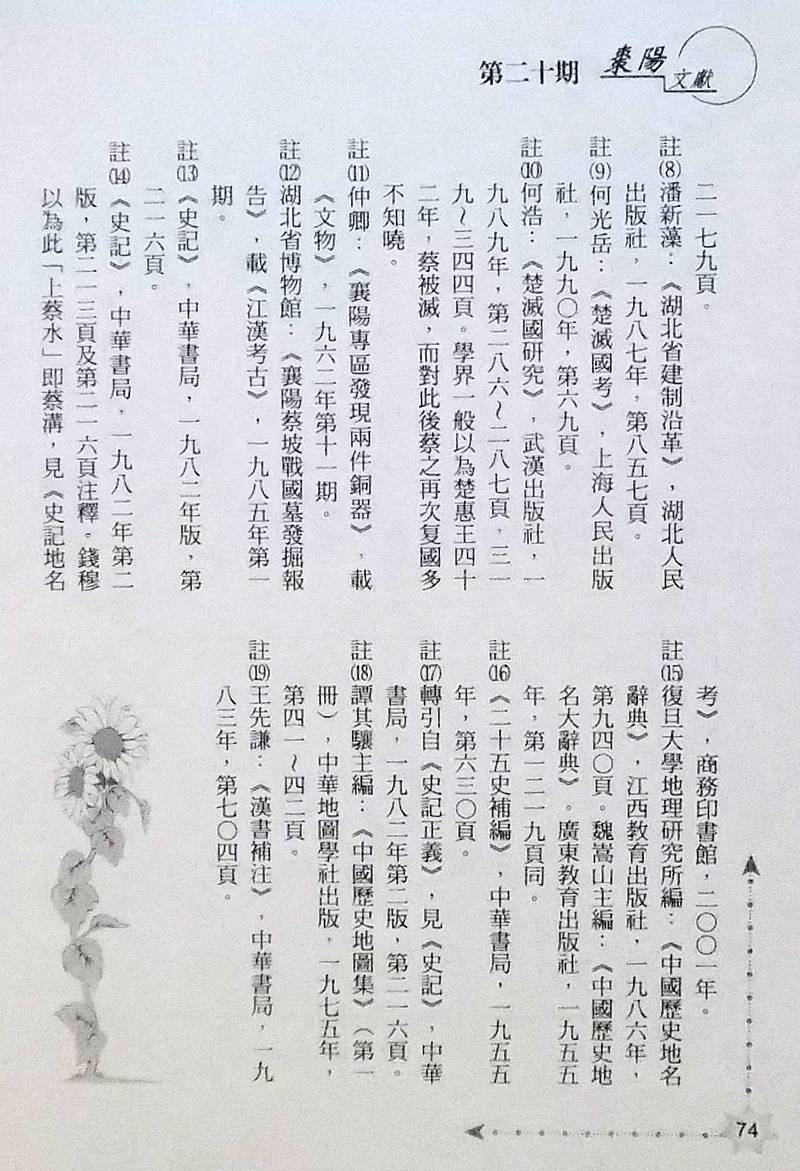 第二十期 棗陽文獻
二一七九頁。
註⑻潘新藻：《湖北省建制沿革》，湖北人民
出版社，一九八七年，第八五七頁。
註⑼何光岳：《楚滅國考》，上海人民出版
社，一九九〇年，第六九頁。
註⑽何浩：《楚滅國研究》，武漢出版社，一
九八九年，第二八六～二八七頁，三一
九～三四四頁。學界一般以為楚惠王四十
二年，蔡被滅，而對此後蔡之再次复國多
不知曉。
註⑾仲卿：《襄陽專區發現兩件銅器》，載
《文物》，一九六二年第十一期。
註⑿湖北省博物館：《襄陽蔡坡戰國墓發掘報
告》，載《江漢考古》，一九八五年第一
期。
註⒀《史記》，中華書局，一九八二年版，第
二一六頁。
註⒁《史記》，中華書局，一九八二年第二
版，第二一三頁及第二一六頁注釋。錢穆
以為此「上蔡水」即蔡溝，見《史記地名
考》，商務印書館，二〇〇一年。
註⒂復旦大學地理研究所編：《中國歷史地名
辭典》，江西教育出版社，一九八六年，
第九四〇頁。魏嵩山主編：《中國歷史地
名大辭典》。廣東教育出版社，一九五五
年，第一二一九頁同。
註⒃《二十五史補編》，中華書局，一九五五
年，第六三〇頁。
註⒄轉引自《史記正義》，見《史記》，中華
書局，一九八二年第二版，第二一六頁。
註⒅譚其驤主編：《中國歷史地圖集》（第一
冊），中華地圖學社出版，一九七五年，
第四一～四二頁。
註⒆王先謙：《漢書補注》，中華書局，一九
八三年，第七〇四頁。
74